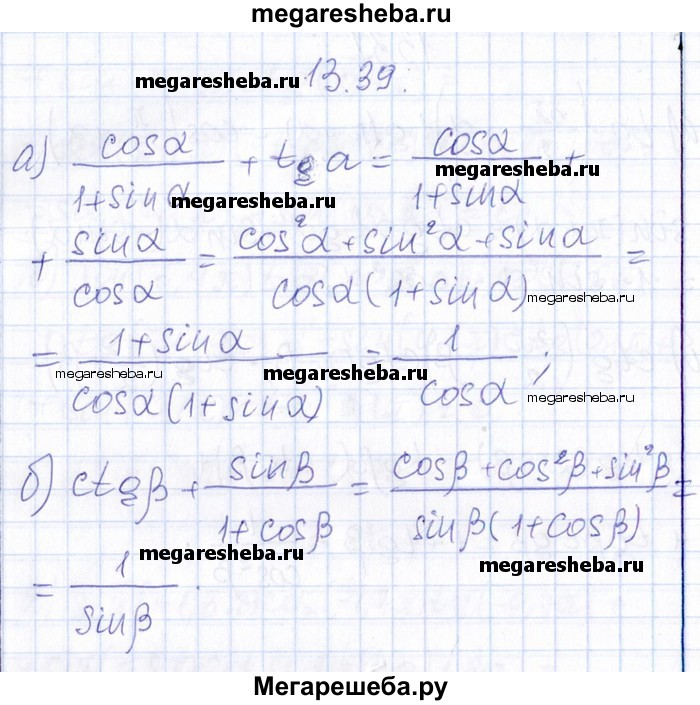 megaresheba.ru
megaresheba.ru 13.39.
а) cosα/(1+sinα) + tg α = cosα/(1+sinα) +
megaresheba.ru
+ sinα/cosα = (cos²α+sin²α+sinα)/(cosα(1+sinα)) =
megaresheba.ru
= (1+sinα)/(cosα(1+sinα)) = 1/cosα ;
megaresheba.ru megaresheba.ru megaresheba.ru
б) ctgβ + sinβ/(1+cosβ) = (cosβ+cos²β+sin²β)/(sinβ(1+cosβ)) =
megaresheba.ru megaresheba.ru
= 1/sinβ .
Мегарешеба.ру